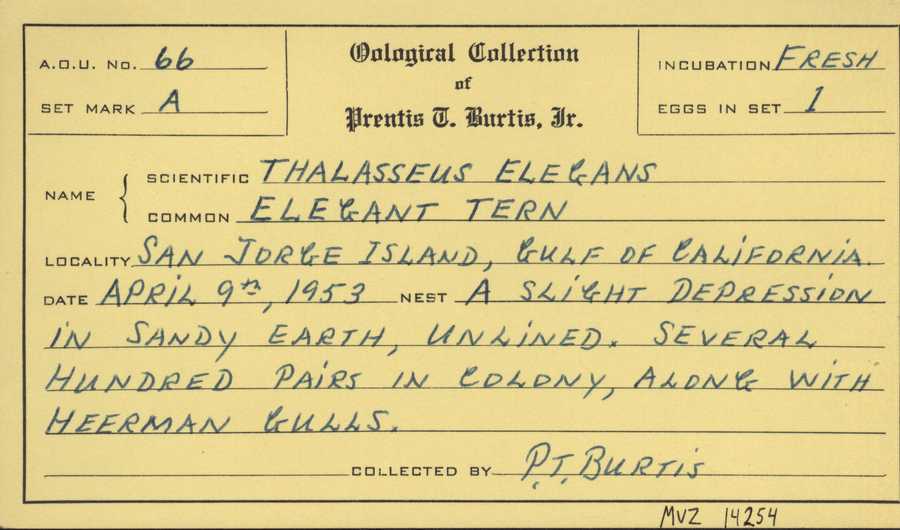 A.O.U. No. 66
SET MARK A
Oological Collection
of
Prentis T. Burtis, Jr.
INCUBATION FRESH
EGGS IN SET 1
NAME
SCIENTIFIC THALASSEUS ELEGANS
COMMON ELEGANT TERN
LOCALITY SAN JORGE ISLAND, GULF OF CALIFORNIA.
DATE APRIL 9TH, 1953 NEST A SLIGHT DEPRESSION
IN SANDY EARTH, UNLINED. SEVERAL
HUNDRED PAIRS IN COLONY, ALONG WITH
HEERMAN GULLS.
COLLECTED BY P.T. BURTIS
MVZ 14254